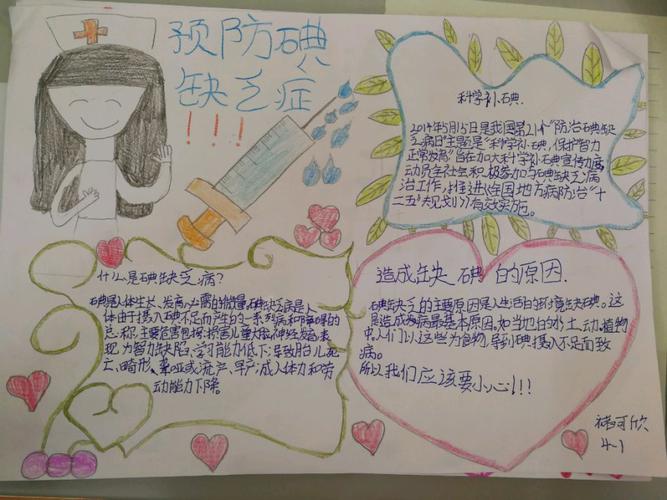 预防碘
缺乏症
!!!
科学补碘
2014年5月15日是我国第21个“防治碘缺
乏病日”主题是“科学补碘,保护智力
正常发育”旨在加大科学补碘宣传力度
动员全社会积极参加与碘缺乏病
治工作,推进全国地方病防治“十
二五”规划有效实施。
什么是碘缺乏病?
碘是人体生长、发育必需的微量碘缺乏病是人
体由于摄入碘不足而产生的一系列病和障碍的
总称,主要危害包括损害儿童大脑神经发育表
现为智力缺陷、学习能力低下;导致胎儿死
亡、畸形、聋哑或流产、早产;减人体力和劳
动能力下降。
造成缺碘的原因.
碘缺乏的主要原因是人生活的环境缺碘。这
是造成为病最基本原因,如当地的水土、动、植物
中,人们以这些为食物,导致碘摄入不足而致
病。
所以我们应该要小心!!!
可欣
4-1